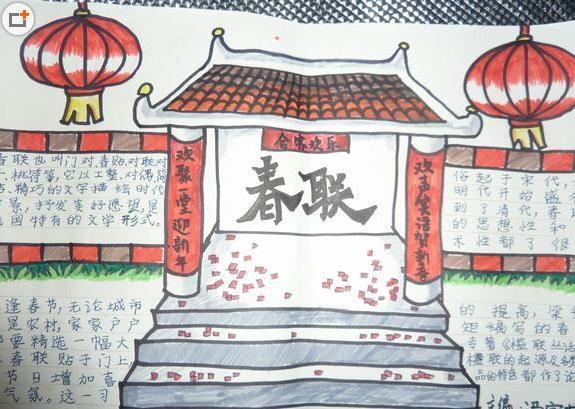 合家欢乐
春联
欢聚一堂迎新年
欢声笑语贺新春
春联也叫门对,春贴,对联对
桃符等,它以工整、对偶简
洁、精巧的文字描绘时代
景,抒发美好愿望,是
国特有的文学形式。
俗起于宋代,
明代开始盛
到了清代,春
的思想性和
术性都了很
逢春节,无论城市
是农村,家家户户
都要精选一幅大
春联贴于门上
节日增加喜
气氛。这一习
的提高,梁
矩编写的春
专著《楹联丛话
楹联的起源及各类
品的特色都作了论